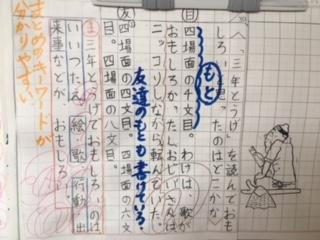 め へ「三年とうげ」を読んでおも
しろいと思ったのはどこかな。
もと
自 四場面の4文目。わけは、歌が
おもしろかった。おじいさんは
ニッコリしながら転んでいた。
友達のもとも書けている。
友 四場面の四文目。四場面の六文
目。四場面の八文目。
ま 三年とうげでおもしろいのは
いいつたえ、絵、歌、行動、出
来事などが、おもしろい。
まとめのキーワードが
分かりやすい。